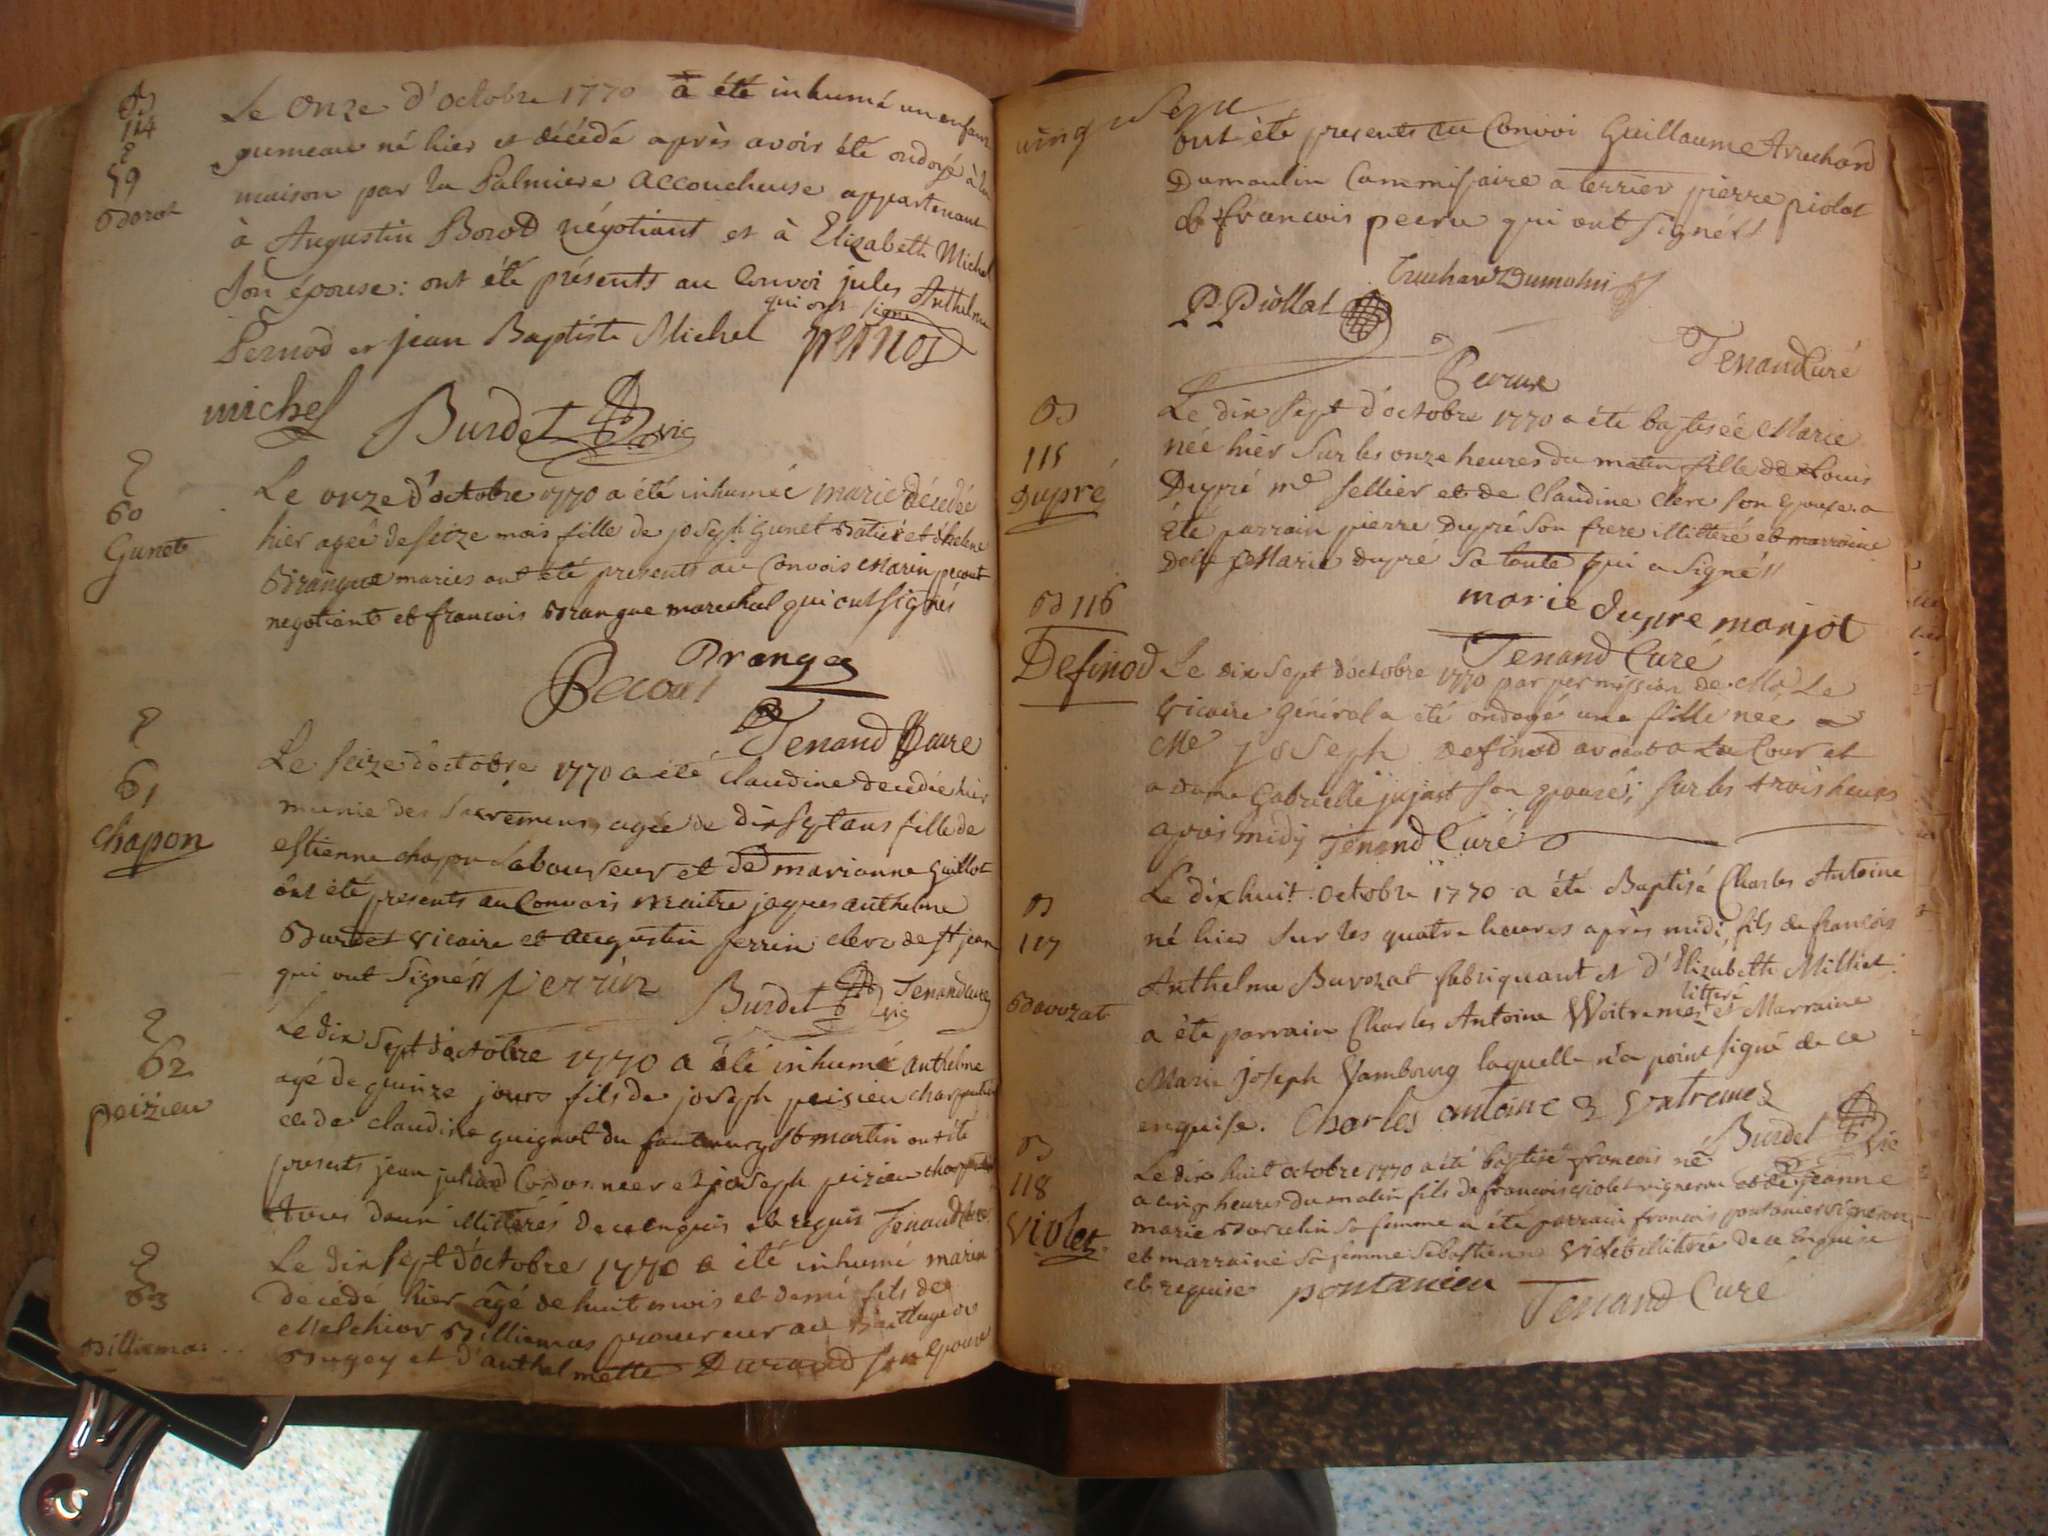 B
114
S
59
Borot
Le onze d'octobre 1770 a été inhumé un enfant
gumeau né hier et décédé après avoir été ondoyé à la
maison par la Palmiere accoucheuse appartenant
à Augustin Borod négotiant et à Elizabeth Michel
son épouse: ont été présents au Convoi jules Anthelme
qui ont signé
Pernod et jean Baptiste Michel pernod
michel Burdet vic
S
60
Gunet
Le onze d'octobre 1770 a été inhumée marie décédée
hier agée de seize mois fille de joseph Gunet et helene
Brangue maries ont été presents au Convois Marin pecout
negotiant et francois Brangue marechal qui ont signés
Brangeg
Pecout
Tenand Cure
S
61
chapon
Le seize d'octobre 1770 a été Claudine decedée hier
munie des Sacremens agée de dix sept ans fille de
estienne chapon Laboureur et de marianne Guillot
ont été presents au Convois maitre jaques anthelme
Burdet vicaire et augustin ferrin clerc de st jean
qui ont signés ferrin Burdet vic Tenand curé
S
62
peizieu
Le dix sept d'octobre 1770 a été inhumé anthelme
agé de quinze jours fils de joseph peisieu charpentier
et de claudine guignot du st martin ont été
presents jean Cordonneer et joseph peizieu charpentier
tous deux illitterés de ce enquis et requis Tenand Curé
S
63
Billiema
Le dix sept d'octobre 1770 a été inhumé marin
decede hier âgé de huit mois et demi fils de
Melchior Billiemas procureur au Baillage de
Bugey et d'anthelmette Durand son epouse
cinq sept
ont été presents au Convoi Guillaume truchard
Dumoulin Commissaire a terrier pierre piolat
& francois peeru qui ont signés
Truchard Dumolin
P. Piollat
Tenand Curé
B
115
Dupré
Le dix sept d'octobre 1770 a été baptisée Marie
née hier sur les onze heures du matin fille de Louis
Dupré me sellier et de Claudine Clerc son epouse a
été parrain pierre Dupré son frere illitteré et marraine
delle Marie Dupré sa tante qui a signé
marie dupré monjot
Tenand Curé
B 116
Definod
Le dix sept d'octobre 1770 par permission de Mr Le
Vicaire general a été ondoyé une fille née a
Me joseph Definod avocat a La Cour et
a dame Gabrielle jujast son epouse, sur les trois heures
apres midy Tenand Curé
B
117
Bavozat
Le dixhuit octobre 1770 a été Baptisé Charles Antoine
né hier sur les quatre heures après midi, fils de françois
Anthelme Bavozat fabriquant et d'Elizabeth Milliet.
litteré
a été parrain Charles Antoine Woitremez et Marraine
Marie Joseph Vambourg laquelle n'a point signé de ce
enquise. Charles antoine Vatremez
Burdet vic
B
118
Violet
Le dix huit octobre 1770 a été baptisé francois né
a cinq heures du matin fils de francois violet vigneron et de jeanne
marie Marcelin sa femme a été parrain francois pontanier vigneron
et marraine sa femme Sebastienne Violet illitérée de ce Enquise
et requise pontanieu Tenand Curé